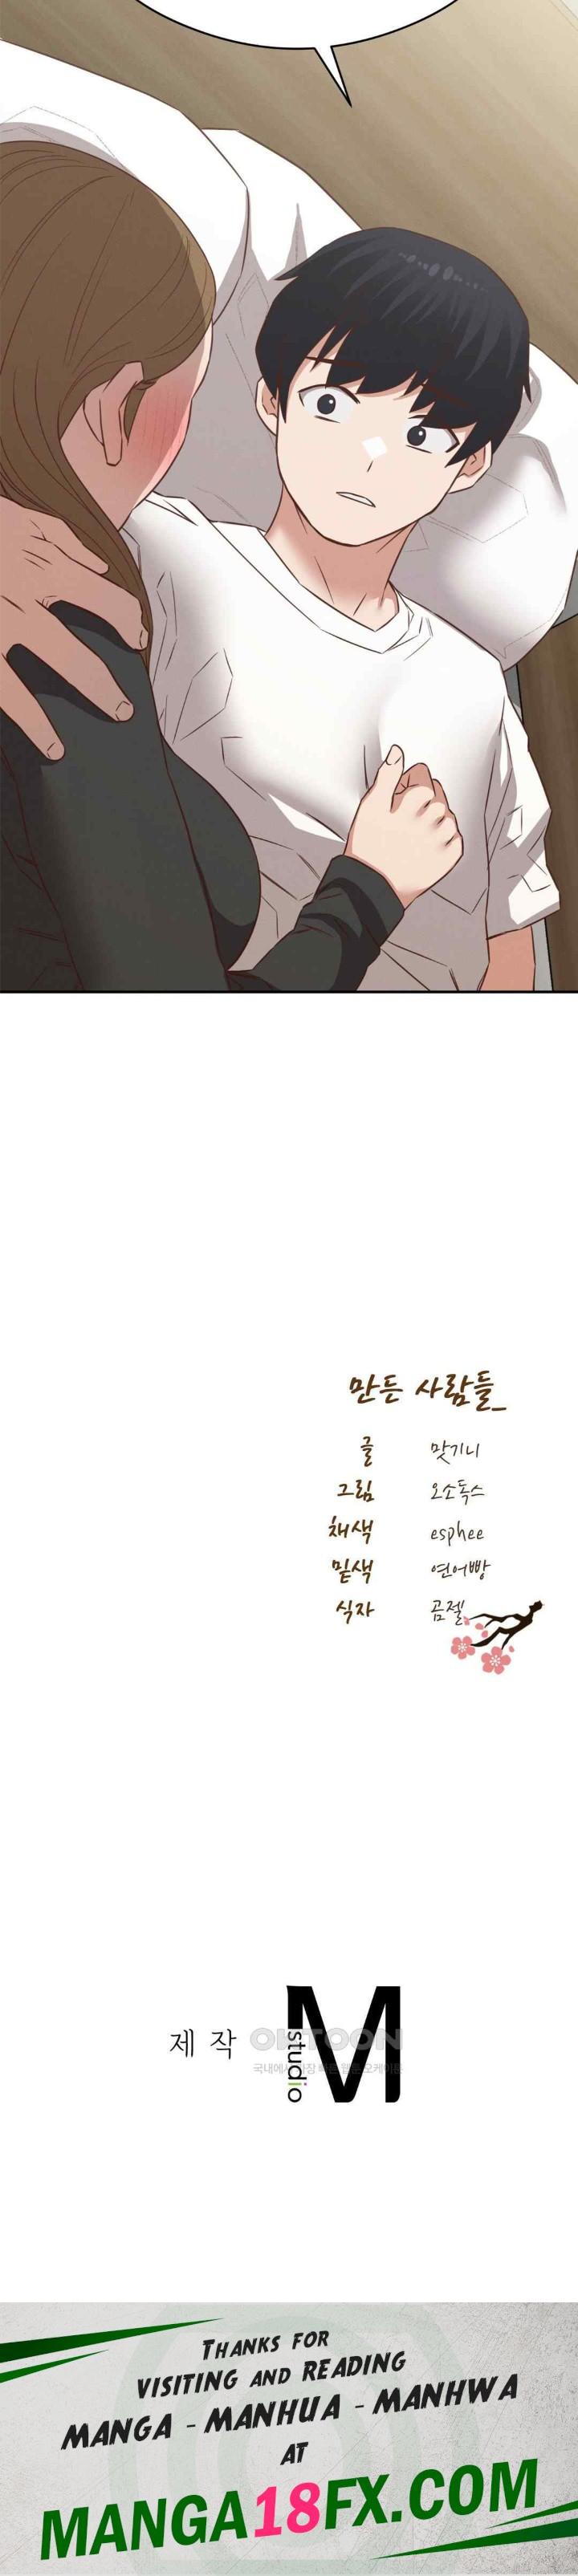 만든 사람들_
글 맛기니
그림 오소독스
채색 esphee
밑색 연어빵
식자 곰젤
제작 studio M
OKTOON
국내에서 가장 빠른 웹툰 오케이툰
THANKS FOR
VISITING AND READING
MANGA - MANHUA - MANHWA
AT
MANGA18FX.COM